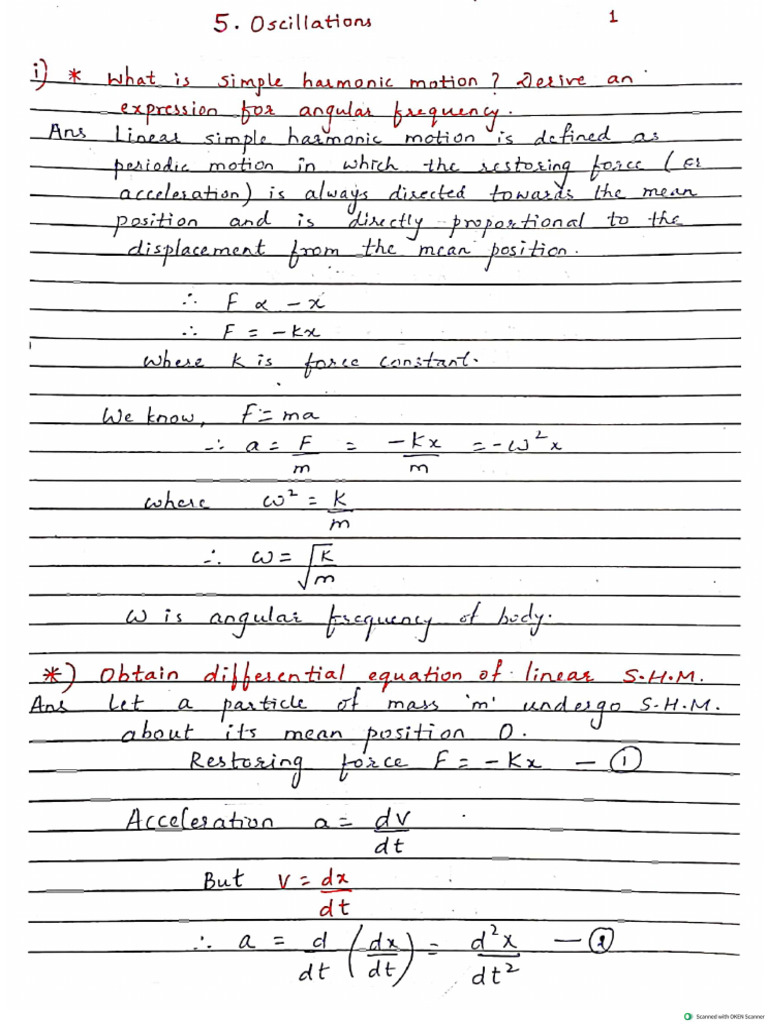 5. Oscillations
1
i) * What is simple harmonic motion? Derive an
expression for angular frequency.
Ans Linear simple harmonic motion is defined as
periodic motion in which the restoring force (or
acceleration) is always directed towards the mean
position and is directly proportional to the
displacement from the mean position.
∴ F ∝ -x
∴ F = -kx
Where k is force constant.
We know, F = ma
∴ a = F/m = -kx/m = -ω²x
where ω² = k/m
∴ ω = √(k/m)
ω is angular frequency of body.
*) Obtain differential equation of linear S.H.M.
Ans Let a particle of mass 'm' undergo S.H.M.
about its mean position O.
Restoring force F = -kx — ①
Acceleration a = dv/dt
But v = dx/dt
∴ a = d/dt (dx/dt) = d²x/dt² — ②
Scanned with OKEN Scanner